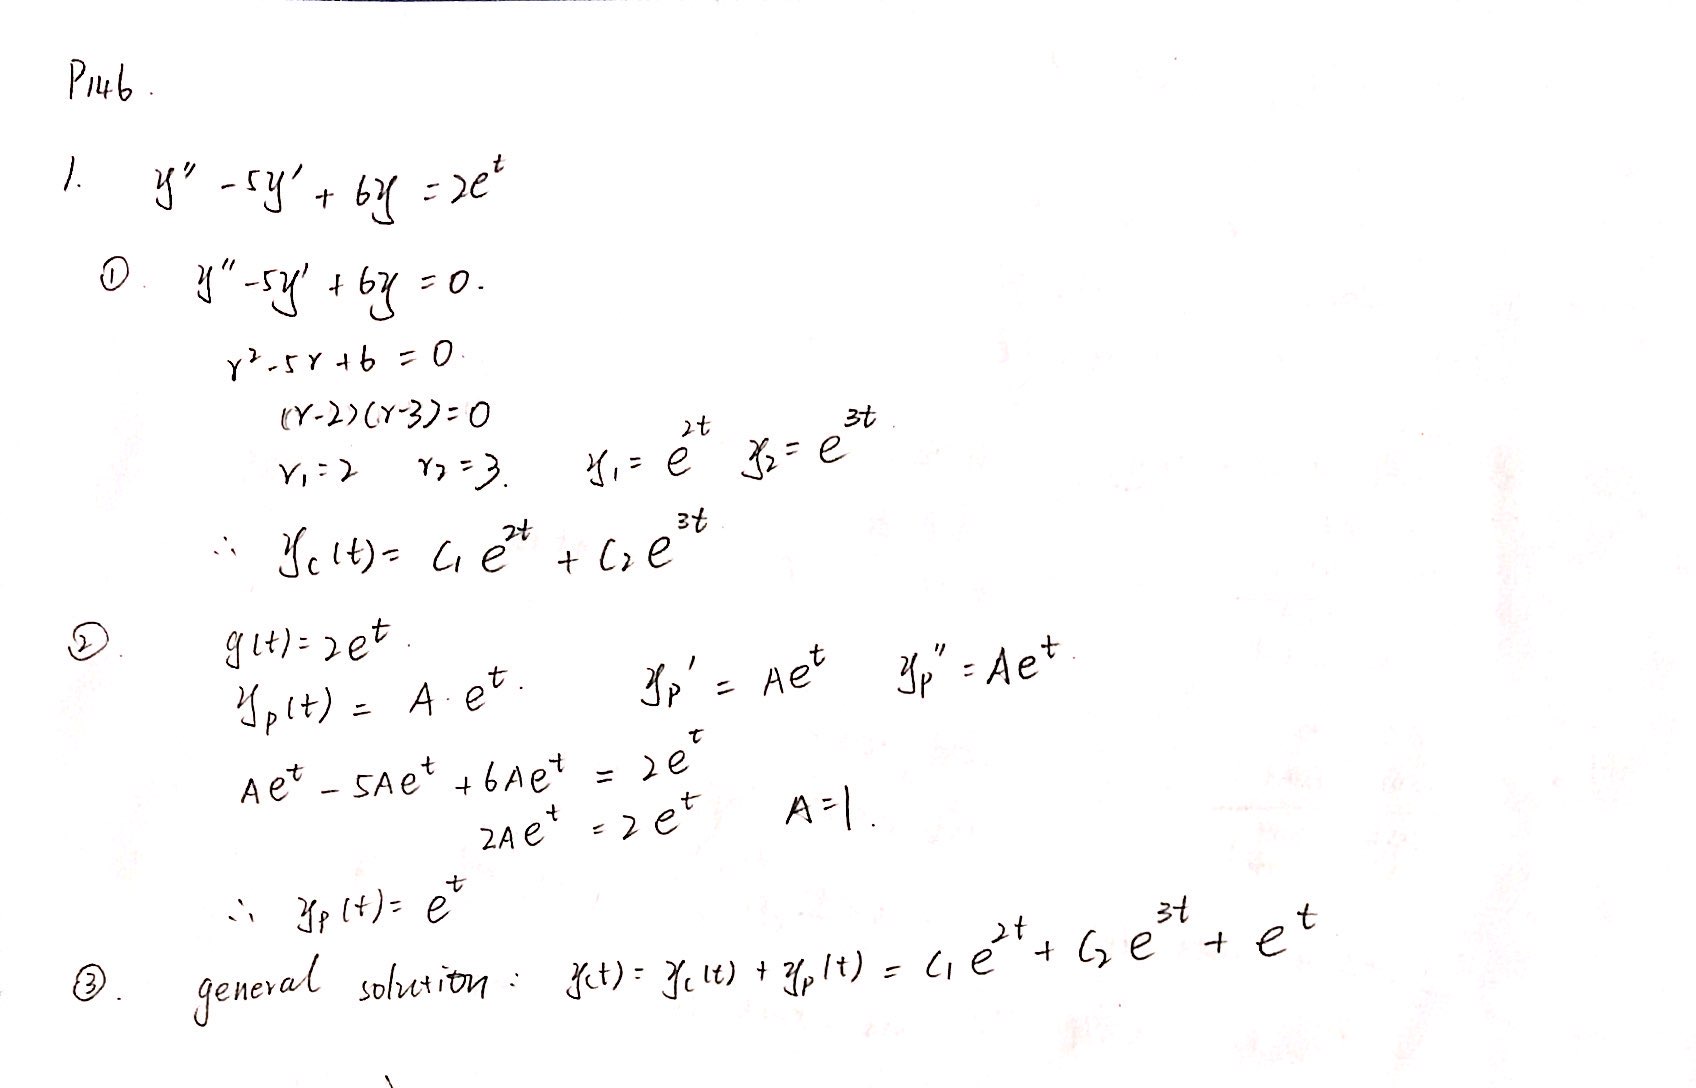 P146.
1. y'' - 5y' + 6y = 2e^t
①. y'' - 5y' + 6y = 0.
r² - 5r + 6 = 0.
(r-2)(r-3) = 0
r₁ = 2 r₂ = 3. y₁ = e^{2t} y₂ = e^{3t}.
∴ y_c(t) = C₁e^{2t} + C₂e^{3t}
②. g(t) = 2e^t.
y_p(t) = A·e^t. y_p' = Ae^t y_p'' = Ae^t.
Ae^t - 5Ae^t + 6Ae^t = 2e^t
2Ae^t = 2e^t A = 1.
∴ y_p(t) = e^t
③. general solution : y(t) = y_c(t) + y_p(t) = C₁e^{2t} + C₂e^{3t} + e^t